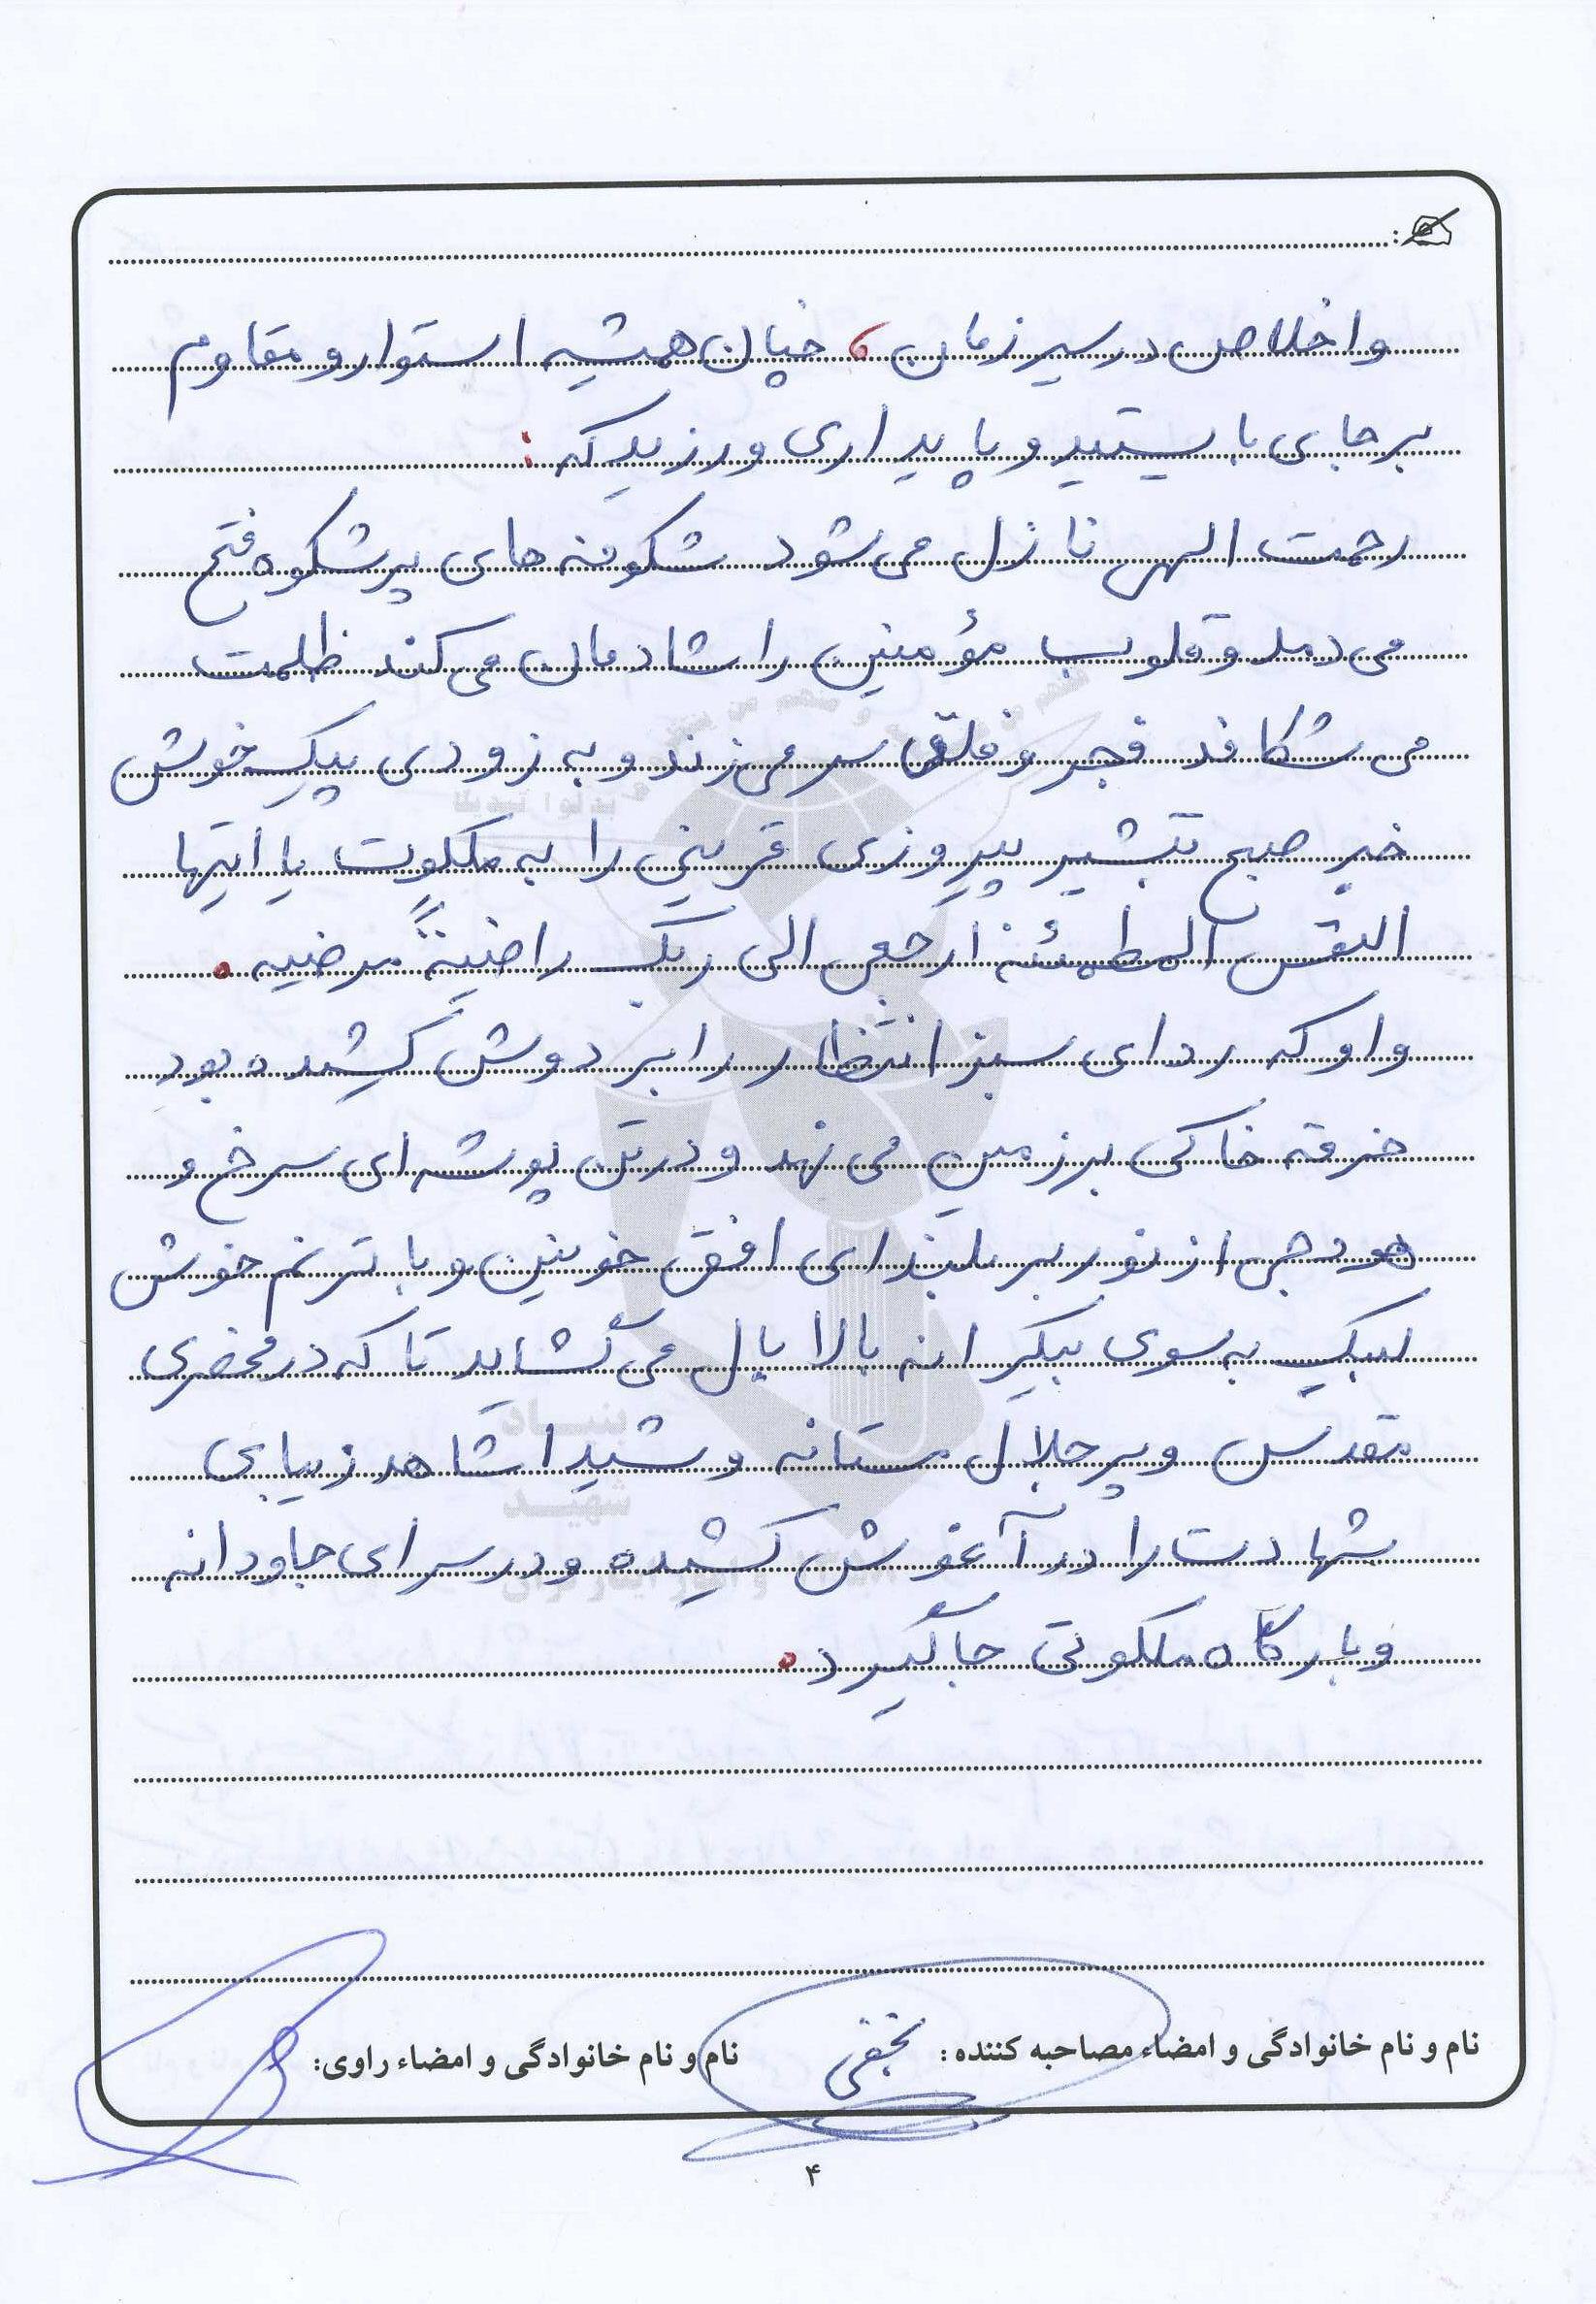 و اخلاص در سیر زمان، چنان همیشه استوار و مقاوم
بر جای بایستید و پایداری ورزید که :
رحمت الهی نازل می‌شود شکوفه‌های پرشکوه فتح
می‌دمد و قلوب مؤمنین را شادمان می‌کند ظلمت
می‌شکافد فجر و فلق سر می‌زند و به زودی پیکِ خوش
خبر صبح تبشیر پیروزی قرینی را به ملکوت یا ایتها
النفس المطمئنه ارجعی الی ربک راضیةً مرضیه .
و او که ردای سبز انتظار را بر دوش کشیده بود
خرقه خاکی بر زمین می نهد و در تن پوشه‌ای سرخ و
هودجی از نور بر بلندای افق خونین و با ترنم خوش
لبیک به سوی بیکرانه بالا بال می‌گشاید تا که در محضری
مقدس و پرجلال مستانه و شیدا شاهد زیبایی
شهادت را در آغوش کشیده و در سرای جاودانه
و بارگاه ملکوتی جا گیرد .
نام و نام خانوادگی و امضاء مصاحبه کننده : نجفی
نام و نام خانوادگی و امضاء راوی:
۴